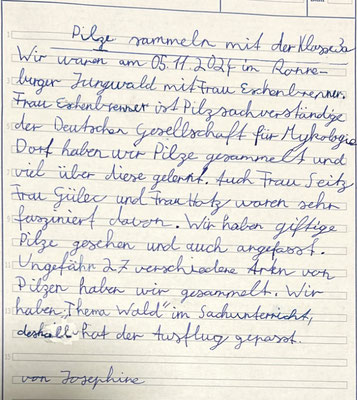 Pilze sammeln mit der Klasse 3a
Wir waren am 05.11.2024 im Ronne-
burger Jungwald mit Frau Eschenbrenner.
Frau Eschenbrenner ist Pilzsachverständige
der Deutschen Gesellschaft für Mykologie
Dort haben wir Pilze gesammelt und
viel über diese gelernt. Auch Frau Seitz
Frau Gülec und Frau Hotz waren sehr
fasziniert davon. Wir haben giftige
Pilze gesehen und auch angefasst.
Ungefähr 27 verschiedene Arten von
Pilzen haben wir gesammelt. Wir
haben „Thema Wald" im Sachunterricht,
deshalb hat der Ausflug gepasst.
von Josephine